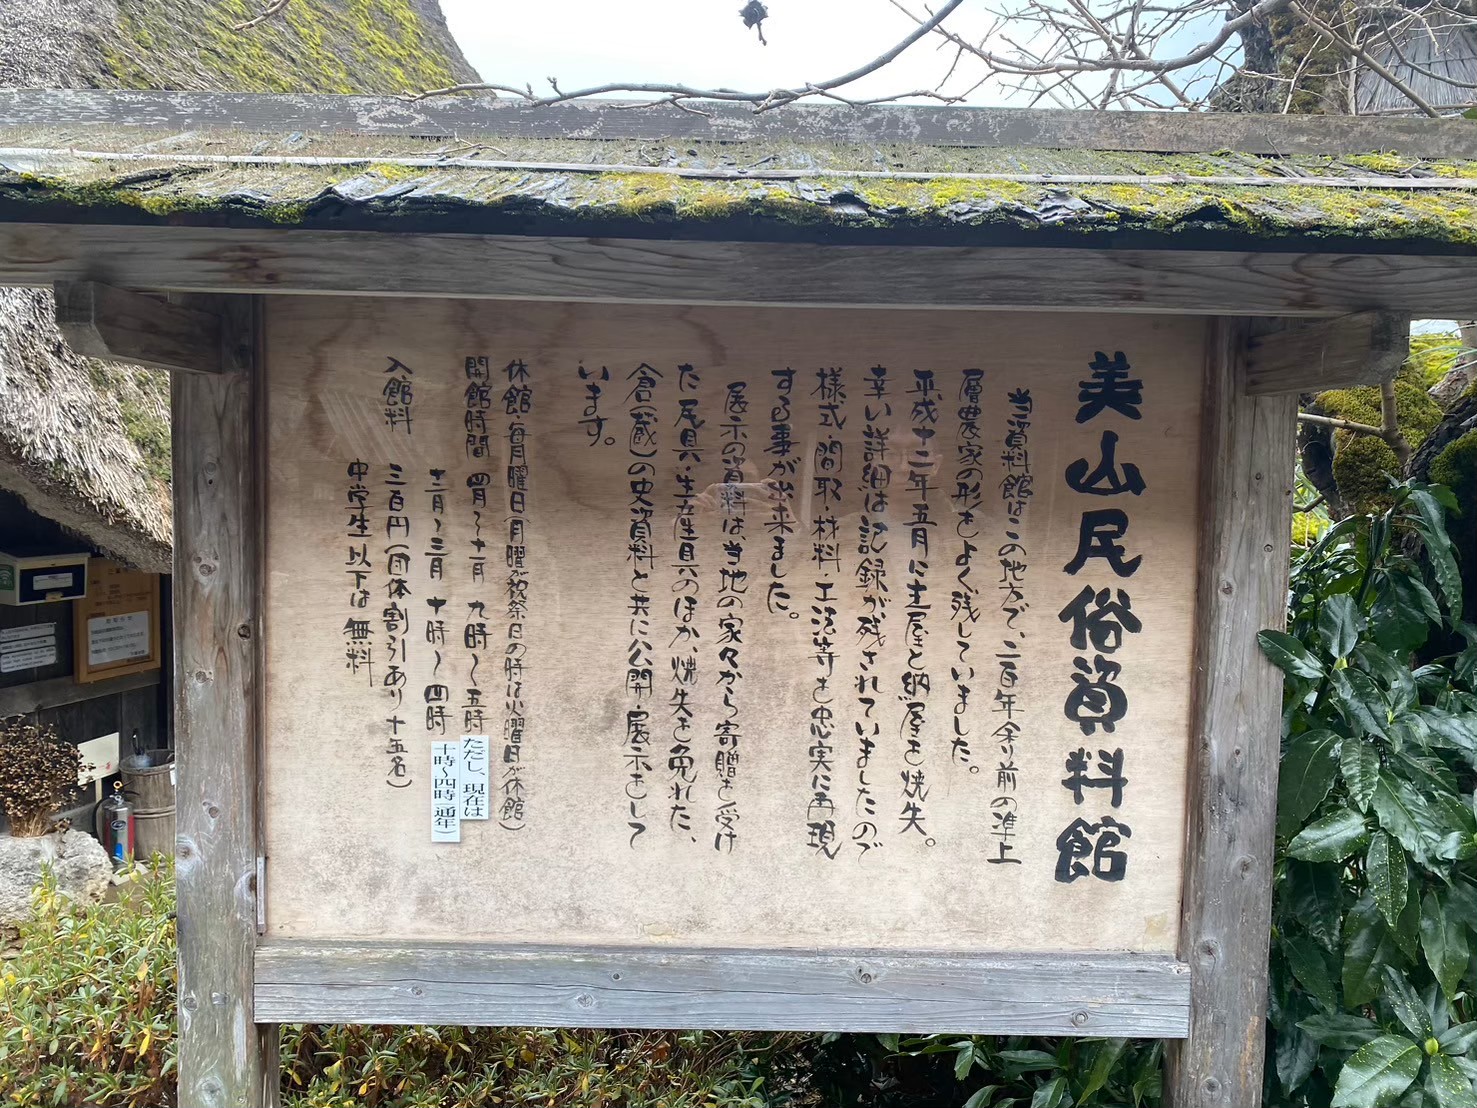 美山民俗資料館
当資料館はこの地方で、二百年余り前の準上
層農家の形をよく残していました。
平成十二年五月に主屋と納屋を焼失。
幸い詳細は記録が残されていましたので
様式・間取・材料・工法等を忠実に再現
する事が出来ました。
展示の資料は、当地の家々から寄贈を受け
た民具・生産具のほか、焼失を免れた、
倉(蔵)の史資料と共に公開・展示をして
います。
休館・毎月曜日(月曜が祝祭日の時は火曜日が休館)
開館時間 四月〜十一月 九時〜五時
ただし、現在は
十二月〜三月 十時〜四時
十時〜四時(通年)
入館料 三百円(団体割引あり十五名)
中学生以下は無料